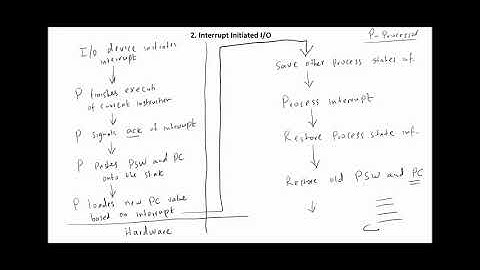 2. Interrupt Initiated I/O
I/O device initiates
interrupt
P finishes executi
of current instruction
P signals ack of interrupt
P pushes PSW and PC
onto the stack
P loades new PC value
based on interrupt
Hardware
P - Processor
Save other process states inf.
Process interrupt
Restore Process state inf.
Restore old PSW and PC